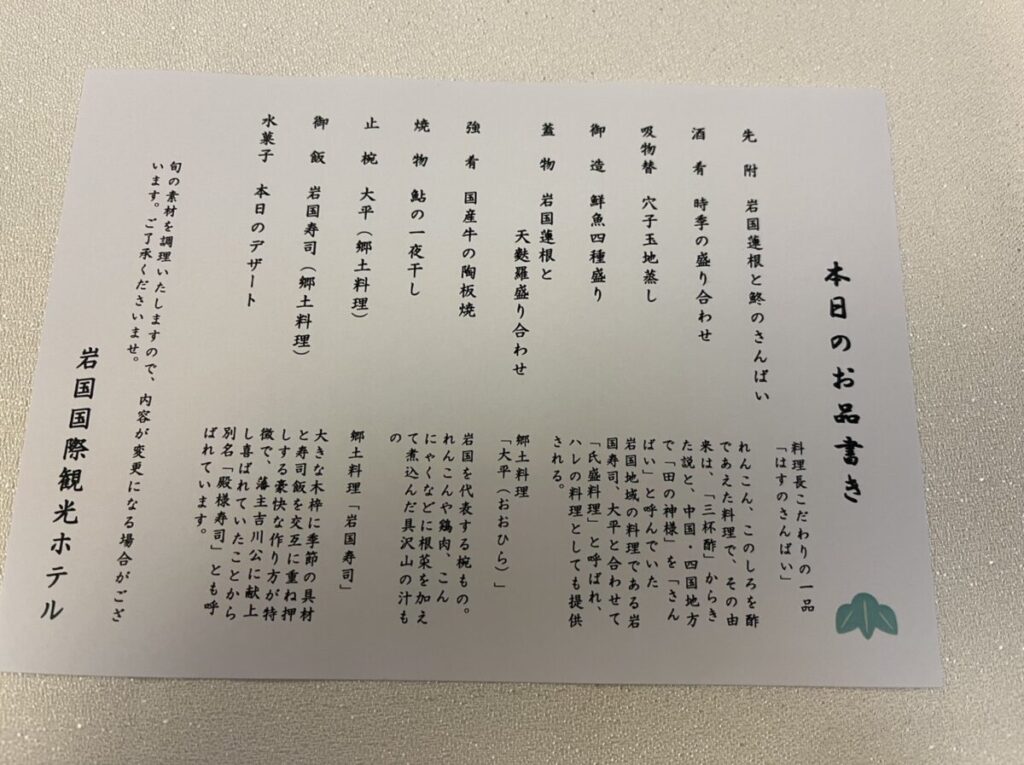 本日のお品書き
先附 岩国蓮根と鮗のさんばい
酒肴 時季の盛り合わせ
吸物替 穴子玉地蒸し
御造 鮮魚四種盛り
蓋物 岩国蓮根と
天麩羅盛り合わせ
強肴 国産牛の陶板焼
焼物 鮎の一夜干し
止椀 大平（郷土料理）
御飯 岩国寿司（郷土料理）
水菓子 本日のデザート
料理長こだわりの一品
「はすのさんばい」
れんこん、このしろを酢
であえた料理で、その由
来は、「三杯酢」からき
た説と、中国・四国地方
で「田の神様」を「さん
ばい」と呼んでいた
岩国地域の料理である岩
国寿司、大平と合わせて
「氏盛料理」と呼ばれ、
ハレの料理としても提供
される。
郷土料理
「大平（おおひら）」
岩国を代表する椀もの。
れんこんや鶏肉、こん
にゃくなどに根菜を加え
て煮込んだ具沢山の汁も
の
郷土料理「岩国寿司」
大きな木枠に季節の具材
と寿司飯を交互に重ね押
しする豪快な作り方が特
徴で、藩主吉川公に献上
し喜ばれていたことから
別名「殿様寿司」とも呼
ばれています。
旬の素材を調理いたしますので、内容が変更になる場合がござ
います。ご了承くださいませ。
岩国国際観光ホテル